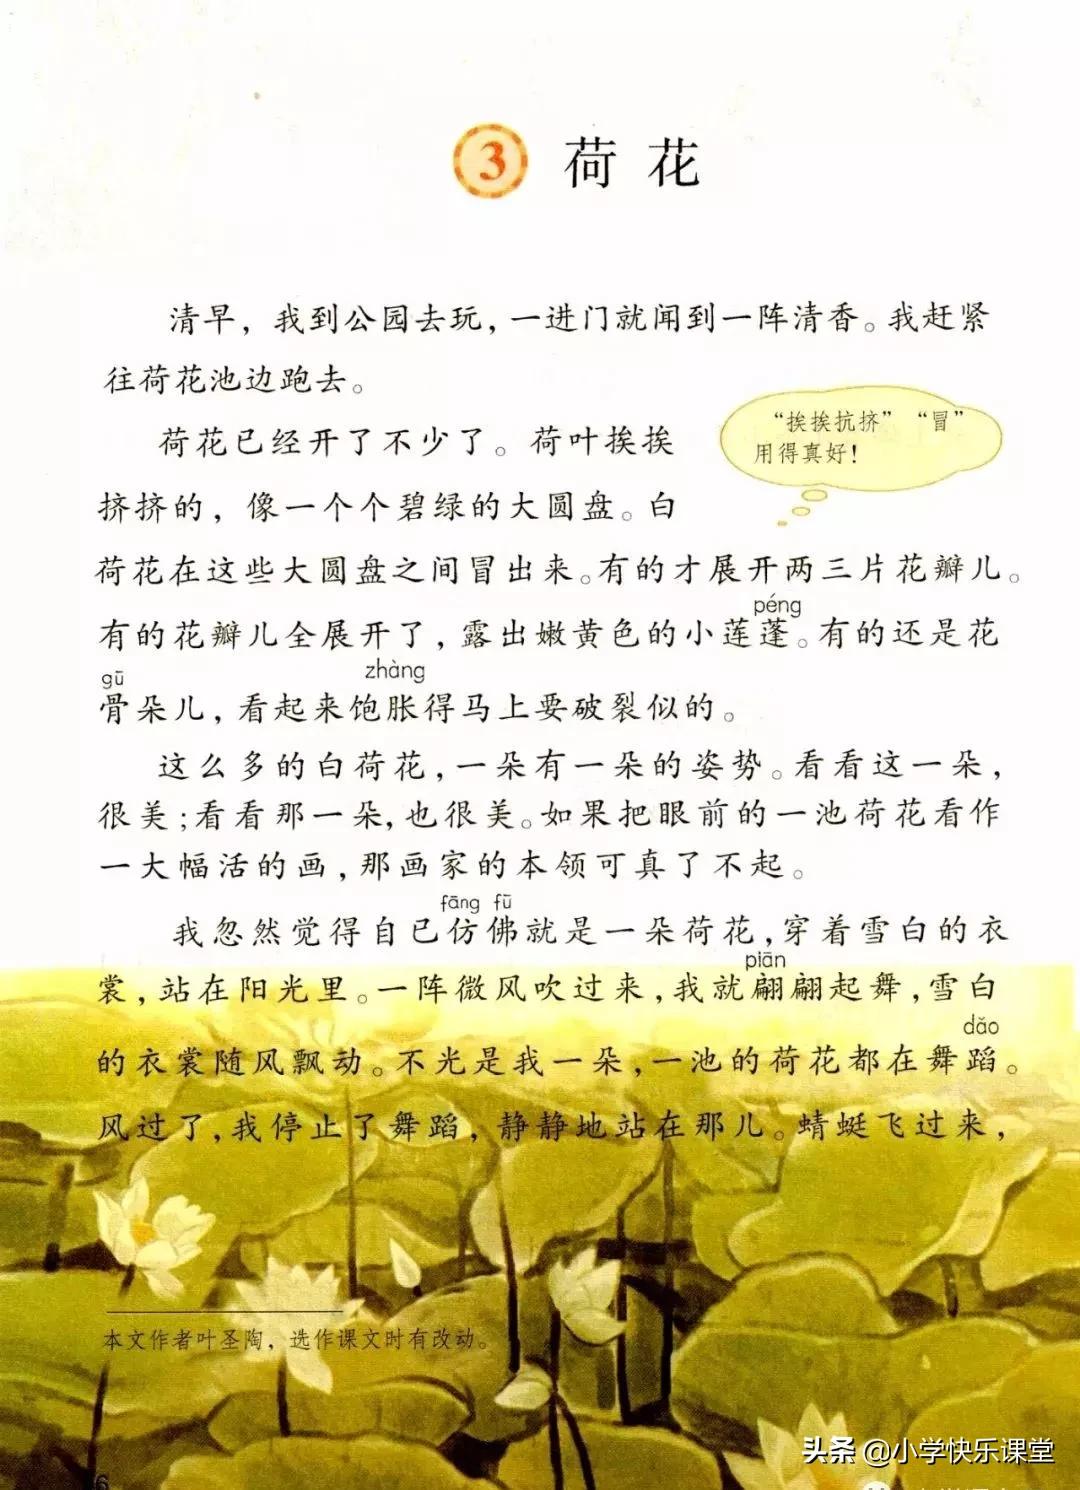 3 荷花
清早，我到公园去玩，一进门就闻到一阵清香。我赶紧
往荷花池边跑去。
荷花已经开了不少了。荷叶挨挨
挤挤的，像一个个碧绿的大圆盘。白
“挨挨抗挤”“冒”
用得真好！
荷花在这些大圆盘之间冒出来。有的才展开两三片花瓣儿。
péng
有的花瓣儿全展开了，露出嫩黄色的小莲蓬。有的还是花
gū zhàng
骨朵儿，看起来饱胀得马上要破裂似的。
这么多的白荷花，一朵有一朵的姿势。看看这一朵，
很美；看看那一朵，也很美。如果把眼前的一池荷花看作
一大幅活的画，那画家的本领可真了不起。
fāng fú
我忽然觉得自己仿佛就是一朵荷花，穿着雪白的衣
piān
裳，站在阳光里。一阵微风吹过来，我就翩翩起舞，雪白
dǎo
的衣裳随风飘动。不光是我一朵，一池的荷花都在舞蹈。
风过了，我停止了舞蹈，静静地站在那儿。蜻蜓飞过来，
本文作者叶圣陶，选作课文时有改动。
6
头条 @小学快乐课堂